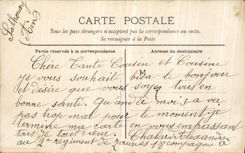 Sathonay
Ain
CARTE POSTALE
Tous les pays étrangers n'acceptent pas la correspondance au recto.
Se renseigner à la Poste
Partie réservée à la correspondance
Adresse du destinataire
Chère Tante Cousin et Cousine
je vous souhait bien le bonjour
et désire que vous soyez tous en
bonne santé. Quand à moi, sa va
pas trop mal pour le moment je
termine ma carte en vous embrassant
tous de tout cœur. Alexandre
au 2e régiment de zouaves 18 compagnie à